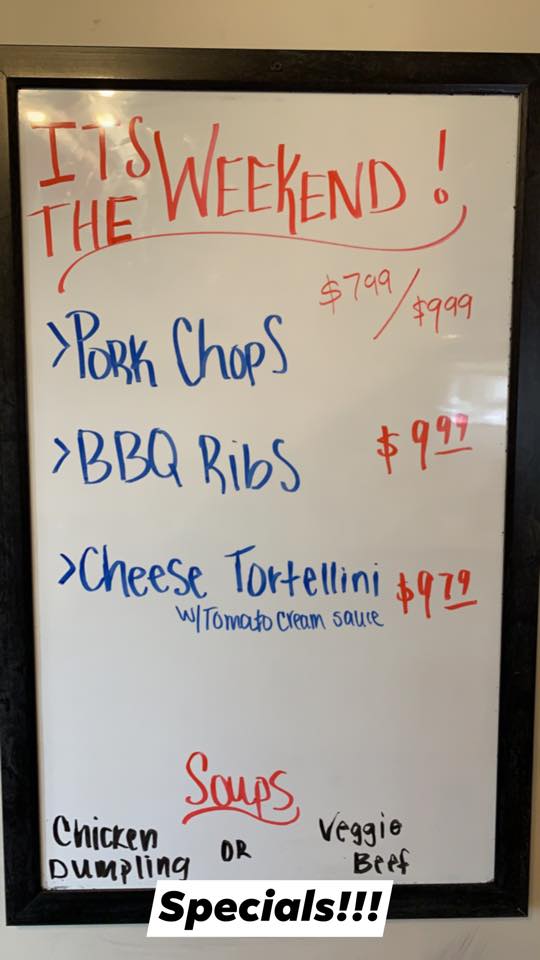 ITS
THE WEEKEND!
$799/$999
>PORK ChopS
>BBQ RibS $999
>Cheese Tortellini $979
W/Tomato Cream sauce
Soups
Chicken Dumpling OR Veggie Beef
Specials!!!